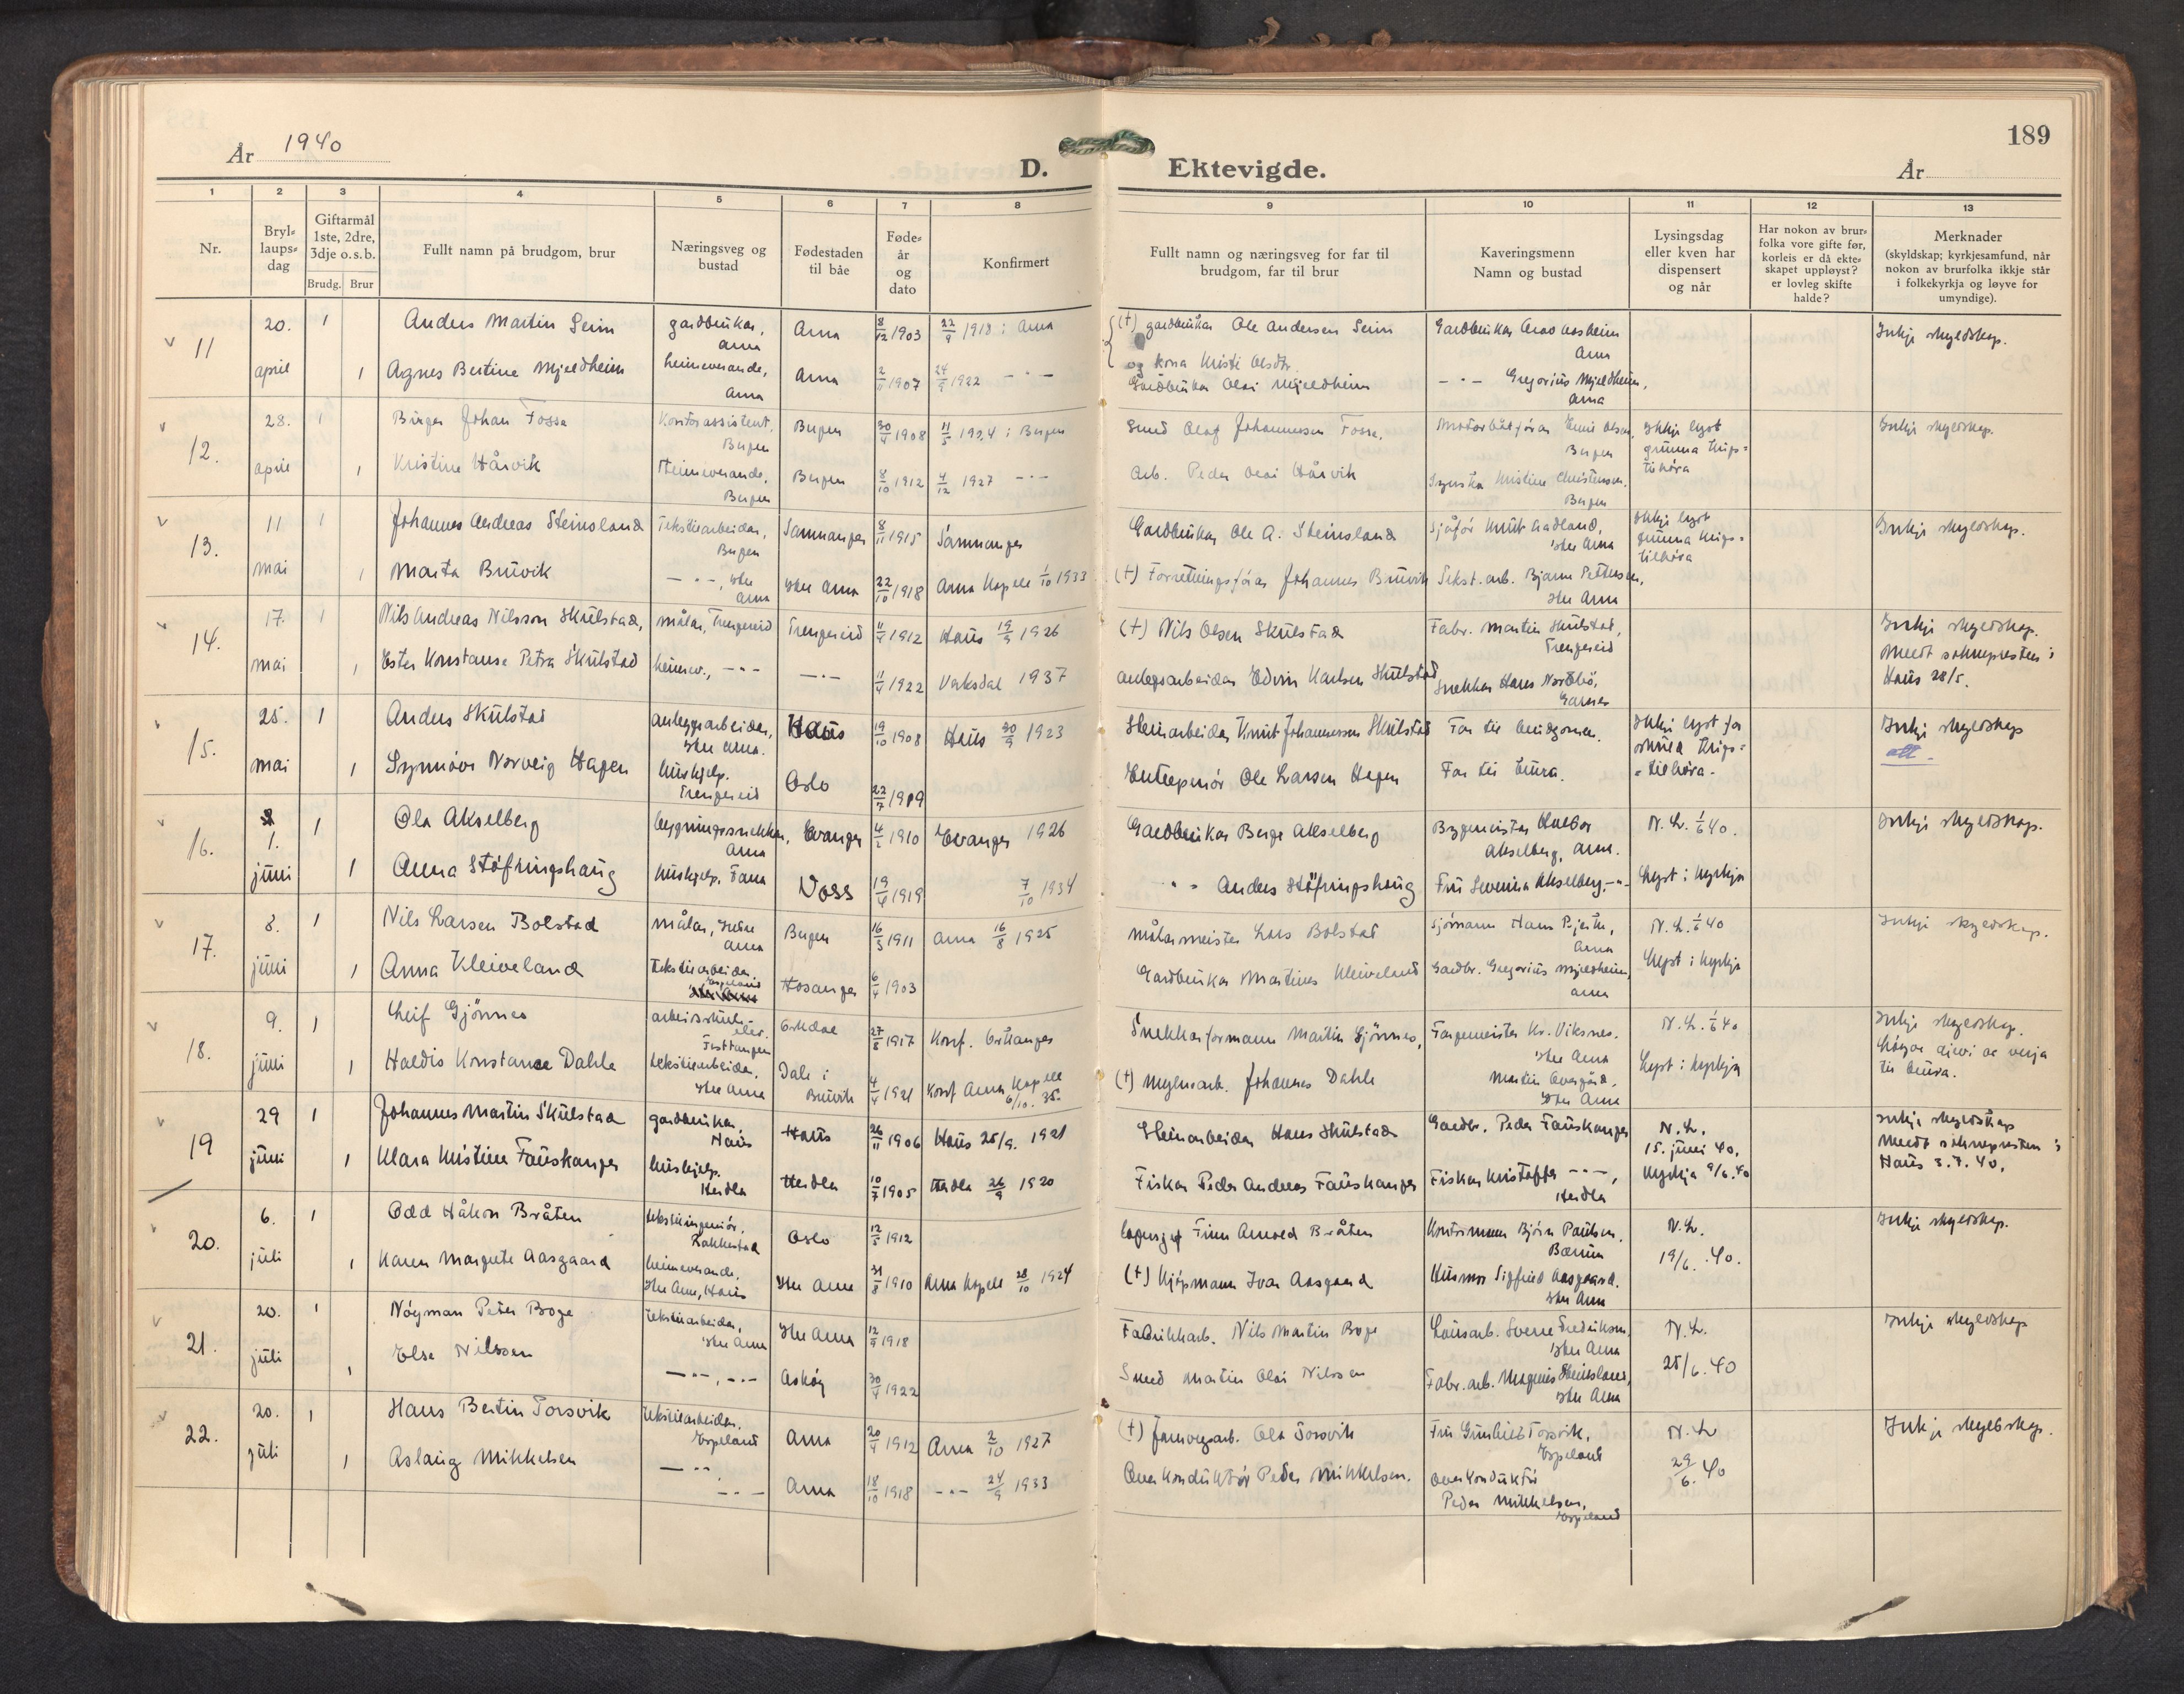 189
År 1940
D. Ektevigde.
År
1 2 3 4 5 6 7 8 9 10 11 12 13
Nr.
Bryllaupsdag
Giftarmål 1ste, 2dre, 3dje o.s.b.
Brudg. Brur
Fullt namn på brudgom, brur
Næringsveg og bustad
Fødestaden til båe
Føde-år og dato
Konfirmert
Fullt namn og næringsveg for far til brudgom, far til brur
Kaveringsmenn
Namn og bustad
Lysingsdag eller kven har dispensert og når
Har nokon av brurfolka vore gifte før, korleis er då ekteskapet uppløyst? er lovleg skifte halde?
Merknader
(skyldskap; kyrkjesamfund, når nokon av brurfolka ikkje står i folkekyrkja og løyve for umyndige).
11 20. 1 Anders Martin Seim gardbrukar, Arna Arna 8/12 1903 22/9 1918 i Arna (+) gardbrukar Ole Andersen Seim og kona Kristi Olsdtr. Gardbrukar Aasheim Arna Inkje skyldskap.
april 1 Agnes Bertine Mjeldheim heimeverande, Arna Arna 1907 24/9 1922 — " — Gardbrukar Olai Mjeldheim — " — Gregorius Mjeldheim, Arna
12. 28. 1 Birger Johan Fosse Kontorassistent, Bergen Bergen 30/4 1908 11/5 1924 i Bergen Smed Olaf Johannessen Fosse. Motorbåtførar Olsen, Bergen Ikkje lyst grunna krigstilhøva Inkje skyldskap.
april 1 Kristine Hårvik Heimeverande, Bergen Bergen 8/10 1912 4/12 1927 — " — Arb. Peder Olai Hårvik Kristine Christensen, Bergen
13. 11 1 Johannes Andreas Steinsland Tekstilarbeidar, Bergen Samnanger 8/11 1915 Samnanger Gardbrukar Ole A. Steinsland Sjåfør Knut Aadland, Ytre Arna Ikkje lyst grunna krigstilhøva Inkje skyldskap.
mai 1 Marta Bruvik — " —, Ytre Arna Ytre Arna 22/10 1918 Arna Kapell 1/10 1933 (+) Forretningsførar Johannes Bruvik Tekst.arb. Bjarne Pettersen, Ytre Arna
14. 17. 1 Nils Andreas Nilsson Skulstad, målar, Trengereid Trengereid 1912 Haus 19/9 1926 (+) Nils Olsen Skulstad Fabr. Martin Skulstad, Trengereid Inkje skyldskap. Meldt soknepresten i Haus 28/5.
mai 1 Ester Konstanse Petra Skulstad heimev., — " — — " — 1922 Vaksdal 1937 anlegsarbeidar Edvin Karlsen Skulstad Snekkar Hans Nordbø, Garnes
15. 25. 1 Anders Skulstad anleggsarbeidar, Ytre Arna. Haus 19/10 1908 Haus 30/9 1923 Steinarbeidar Knut Johannessen Skulstad Far til brudgomen. Ikkje lyst for skuld krigstilhøva. Inkje skyldskap
mai 1 Synnøve Norveig Hagen Hushjelp. Trengereid Oslo 22/7 1919 Entreprenør Ole Larsen Hagen Far til brura.
16. 1. 1 Ola Akselberg bygningssnekkar, Arna Evanger 1910 Evanger 1926 Gardbrukar Berge Akselberg Bygmeister Halvor Akselberg, Arna. N. L. 1/6 40. Inkje skyldskap.
juni 1 Anna Støfringshaug hushjelp, Fana Voss 19/6 1919 7/10 1934 " " Anders Støfringshaug Fru Severina Akselberg, — " — Lyst i kyrkja
17. 8. 1 Nils Larsen Bolstad målar, Indre Arna Bergen 16/5 1911 Arna 16/8 1925 målarmeister Lars Bolstad Sjømann Hans Arna N. L. 1/6 40 Inkje skyldskap.
juni 1 Anna Kleiveland tekstilarbeidar. Espeland Hosanger 6/4 1903 Gardbrukar Martinus Kleiveland Gardbr. Gregorius Mjeldheim, Arna Lyst i kyrkja
18. 9. 1 Leif Gjønnes Festtangen Orkdal 27/8 1917 Konf. Orkanger Snekkarformann Martin Gjønnes, Fargemeister Kr. Viksnes. Ytre Arna N. L. 1/6 40 Inkje skyldskap. Løyve av verja til brura.
juni 1 Haldis Konstance Dahle tekstilarbeidar. Ytre Arna Dale i Bruvik 4/4 1921 Konf Arna Kapell 6/10. 35. (+) Johannes Dahle Martin Ytre Arna Lyst i kyrkja
19 29 1 Johannes Martin Skulstad gardbrukar, Haus Haus 26/11 1906 Haus 25/9. 1921 Steinarbeidar Hans Skulstad Gardbr. Peder Fauskanger N. L. 15. juni 40. Inkje skyldskap Meldt soknepresten i Haus 3.7.40.
juni 1 Klara Kristine Fauskanger hushjelp. Herdla Herdla 10/7 1905 Herdla 26/9 1920 Fiskar Peder Andreas Fauskanger Fiskar Kristoffer — " —, Herdla Kyrkja 9/6.40
20. 6. 1 Odd Håkon Bråten tekstilingeniør. Rakkestad Oslo 12/5 1912 Finn Arnold Bråten Kontormann Bjørn Paulsen, Bærum N. L. 19/6. 40. Inkje skyldskap.
juli 1 Karen Margrete Aasgaard heimeverande. Ytre Arna, Haus Ytre Arna 31/8 1910 Arna Kapell 28/10 1924 (+) Kjøpmann Ivar Aasgaard Husmor Sigfrid Aasgaard. Ytre Arna
21. 20. 1 Nøyman Peter Boge tekstilarbeidar, Ytre Arna Ytre Arna 1918 Fabrikkarb. Nils Martin Boge Sverre Fredriksen, Ytre Arna N. L. 25/6. 40 Inkje skyldskap
juli 1 Else Nilssen — " —, — " — Askøy 30/4 1922 Smed Martin Olai Nilssen Fabr.arb. Magnus Steinsland, Ytre Arna
22. 20. 1 Hans Bertin Torsvik tekstilarbeidar. Espeland Arna 20/4 1912 Arna 2/10 1927 (+) Jarnvegarb. Ola Torsvik Fru Gunhild Torsvik, Espeland N. L 29/6. 40 Inkje skyldskap.
juli 1 Aslaug Mikkelsen — " — — " — Arna 18/10 1918 — " — 24/9 1933 Overkonduktør Peder Mikkelsen. Overkonduktør Peder Mikkelsen, Espeland